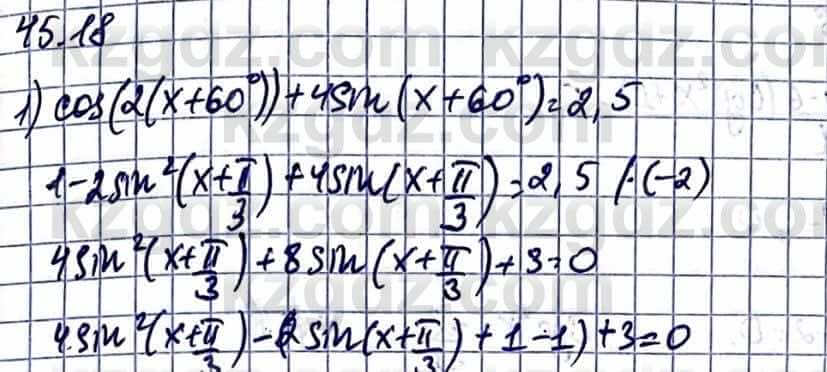 45.18
1) cos(2(x+60°))+4sin(x+60°)=2,5
1-2sin²(x+π/3)+4sin(x+π/3)=2,5 /·(-2)
4sin²(x+π/3)+8sin(x+π/3)+3=0
4sin²(x+π/3)-(2sin(x+π/3)+1-1)+3=0
kzgdz.com